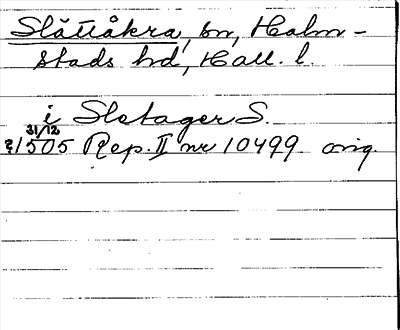 Slättåkra, sn, Halm-
stads hd, Hall. l.
i Sletager S.
31/12
1505 Rep. II nr 10499 orig.